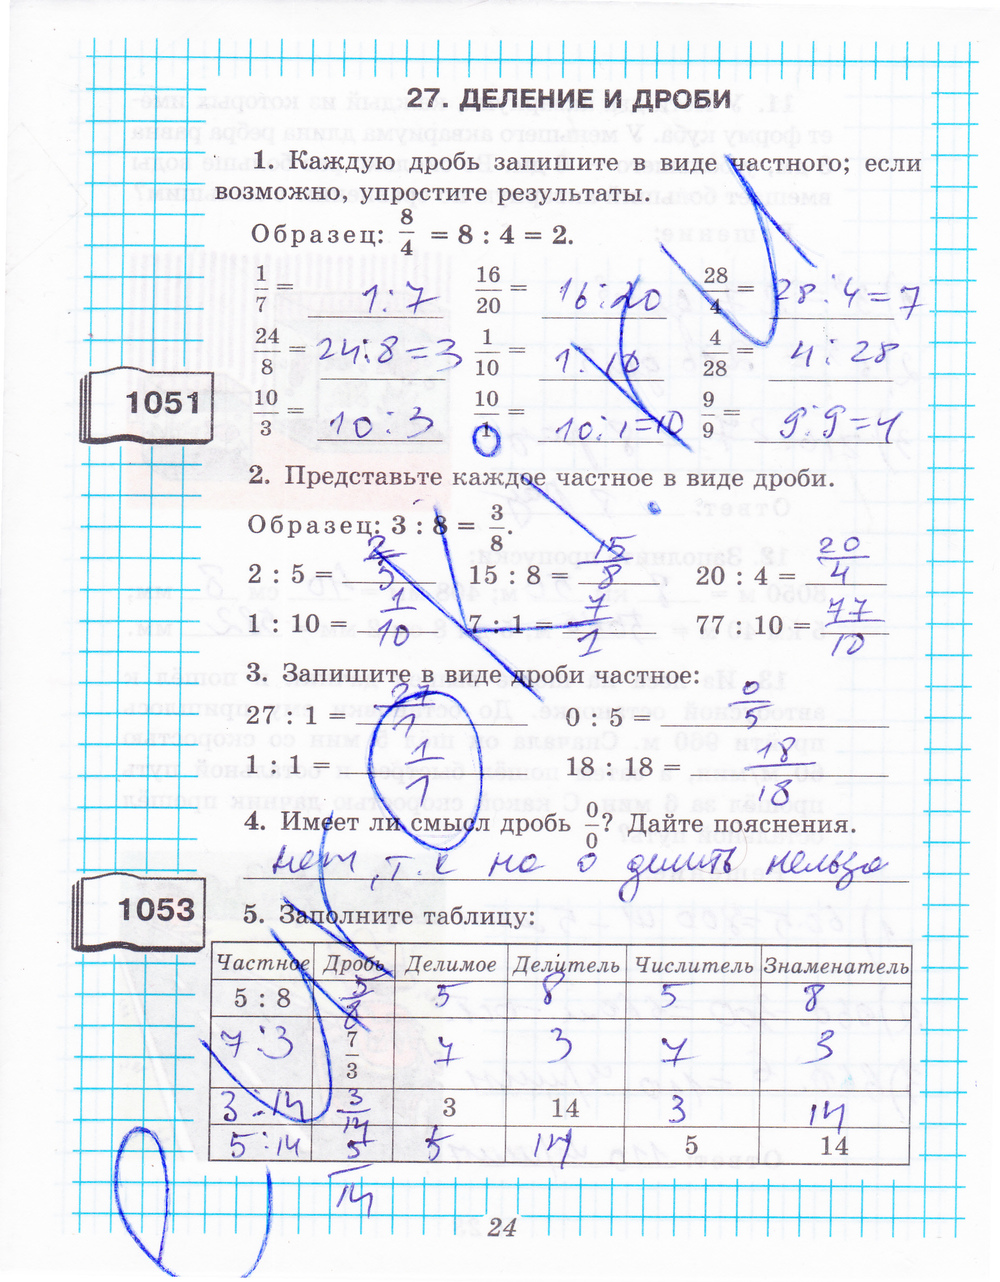 27 ДЕЛЕНИЕ И ДРОБИ
1. Каждую дробь запишите в виде частного; если
возможно, упростите результаты.
Образец: 8/4 = 8 : 4 = 2.
1/7 = 1:7 16/20 = 16:20 28/4 = 28:4=7
24/8 = 24:8=3 1/10 = 1:10 4/28 = 4:28
1051
10/3 = 10:3 10/1 = 10:1=10 9/9 = 9:9=1
2. Представьте каждое частное в виде дроби.
Образец: 3 : 8 = 3/8.
2 : 5 = 2/5 15 : 8 = 15/8 20 : 4 = 20/4
1 : 10 = 1/10 7 : 1 = 7/1 77 : 10 = 77/10
3. Запишите в виде дроби частное:
27 : 1 = 27/1 0 : 5 = 0/5
1 : 1 = 1/1 18 : 18 = 18/18
4. Имеет ли смысл дробь 0/0? Дайте пояснения.
нет, т.к на 0 делить нельзя
1053
5. Заполните таблицу:
Частное Дробь Делимое Делитель Числитель Знаменатель
5 : 8 5/8 5 8 5 8
7:3 7/3 7 3 7 3
3:14 3/14 3 14 3 14
5:14 5/14 5 14 5 14
24